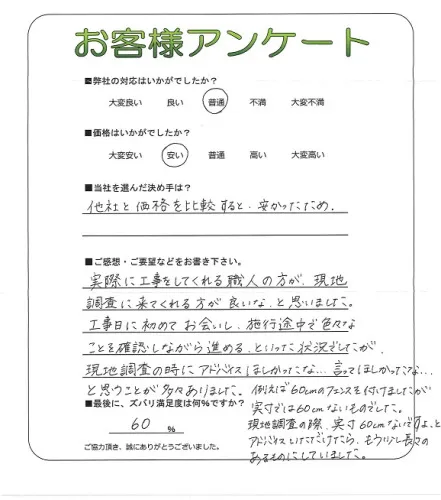 お客様アンケート
■弊社の対応はいかがでしたか？
大変良い 良い 普通 不満 大変不満
■価格はいかがでしたか？
大変安い 安い 普通 高い 大変高い
■当社を選んだ決め手は？
他社と価格を比較すると、安かったため。
■ご感想・ご要望などをお書き下さい。
実際に工事をしてくれる職人の方が、現地
調査に来てくれる方が良いな、と思いました。
工事日に初めてお会いし、施行途中で色々な
ことを確認しながら進める、といった状況でしたが、
現地調査の時にアドバイスほしかったな…言ってほしかったな…
と思うことが多々ありました。
例えば60cmのフェンスを付けましたが
実寸では60cmないものでした。
現地調査の際、実寸60cmないですよ、と
アドバイスいただけたら、もう少し長さの
あるものにしていました。
■最後に、ズバリ満足度は何%ですか？
60 %
ご協力頂き、誠にありがとうございました。